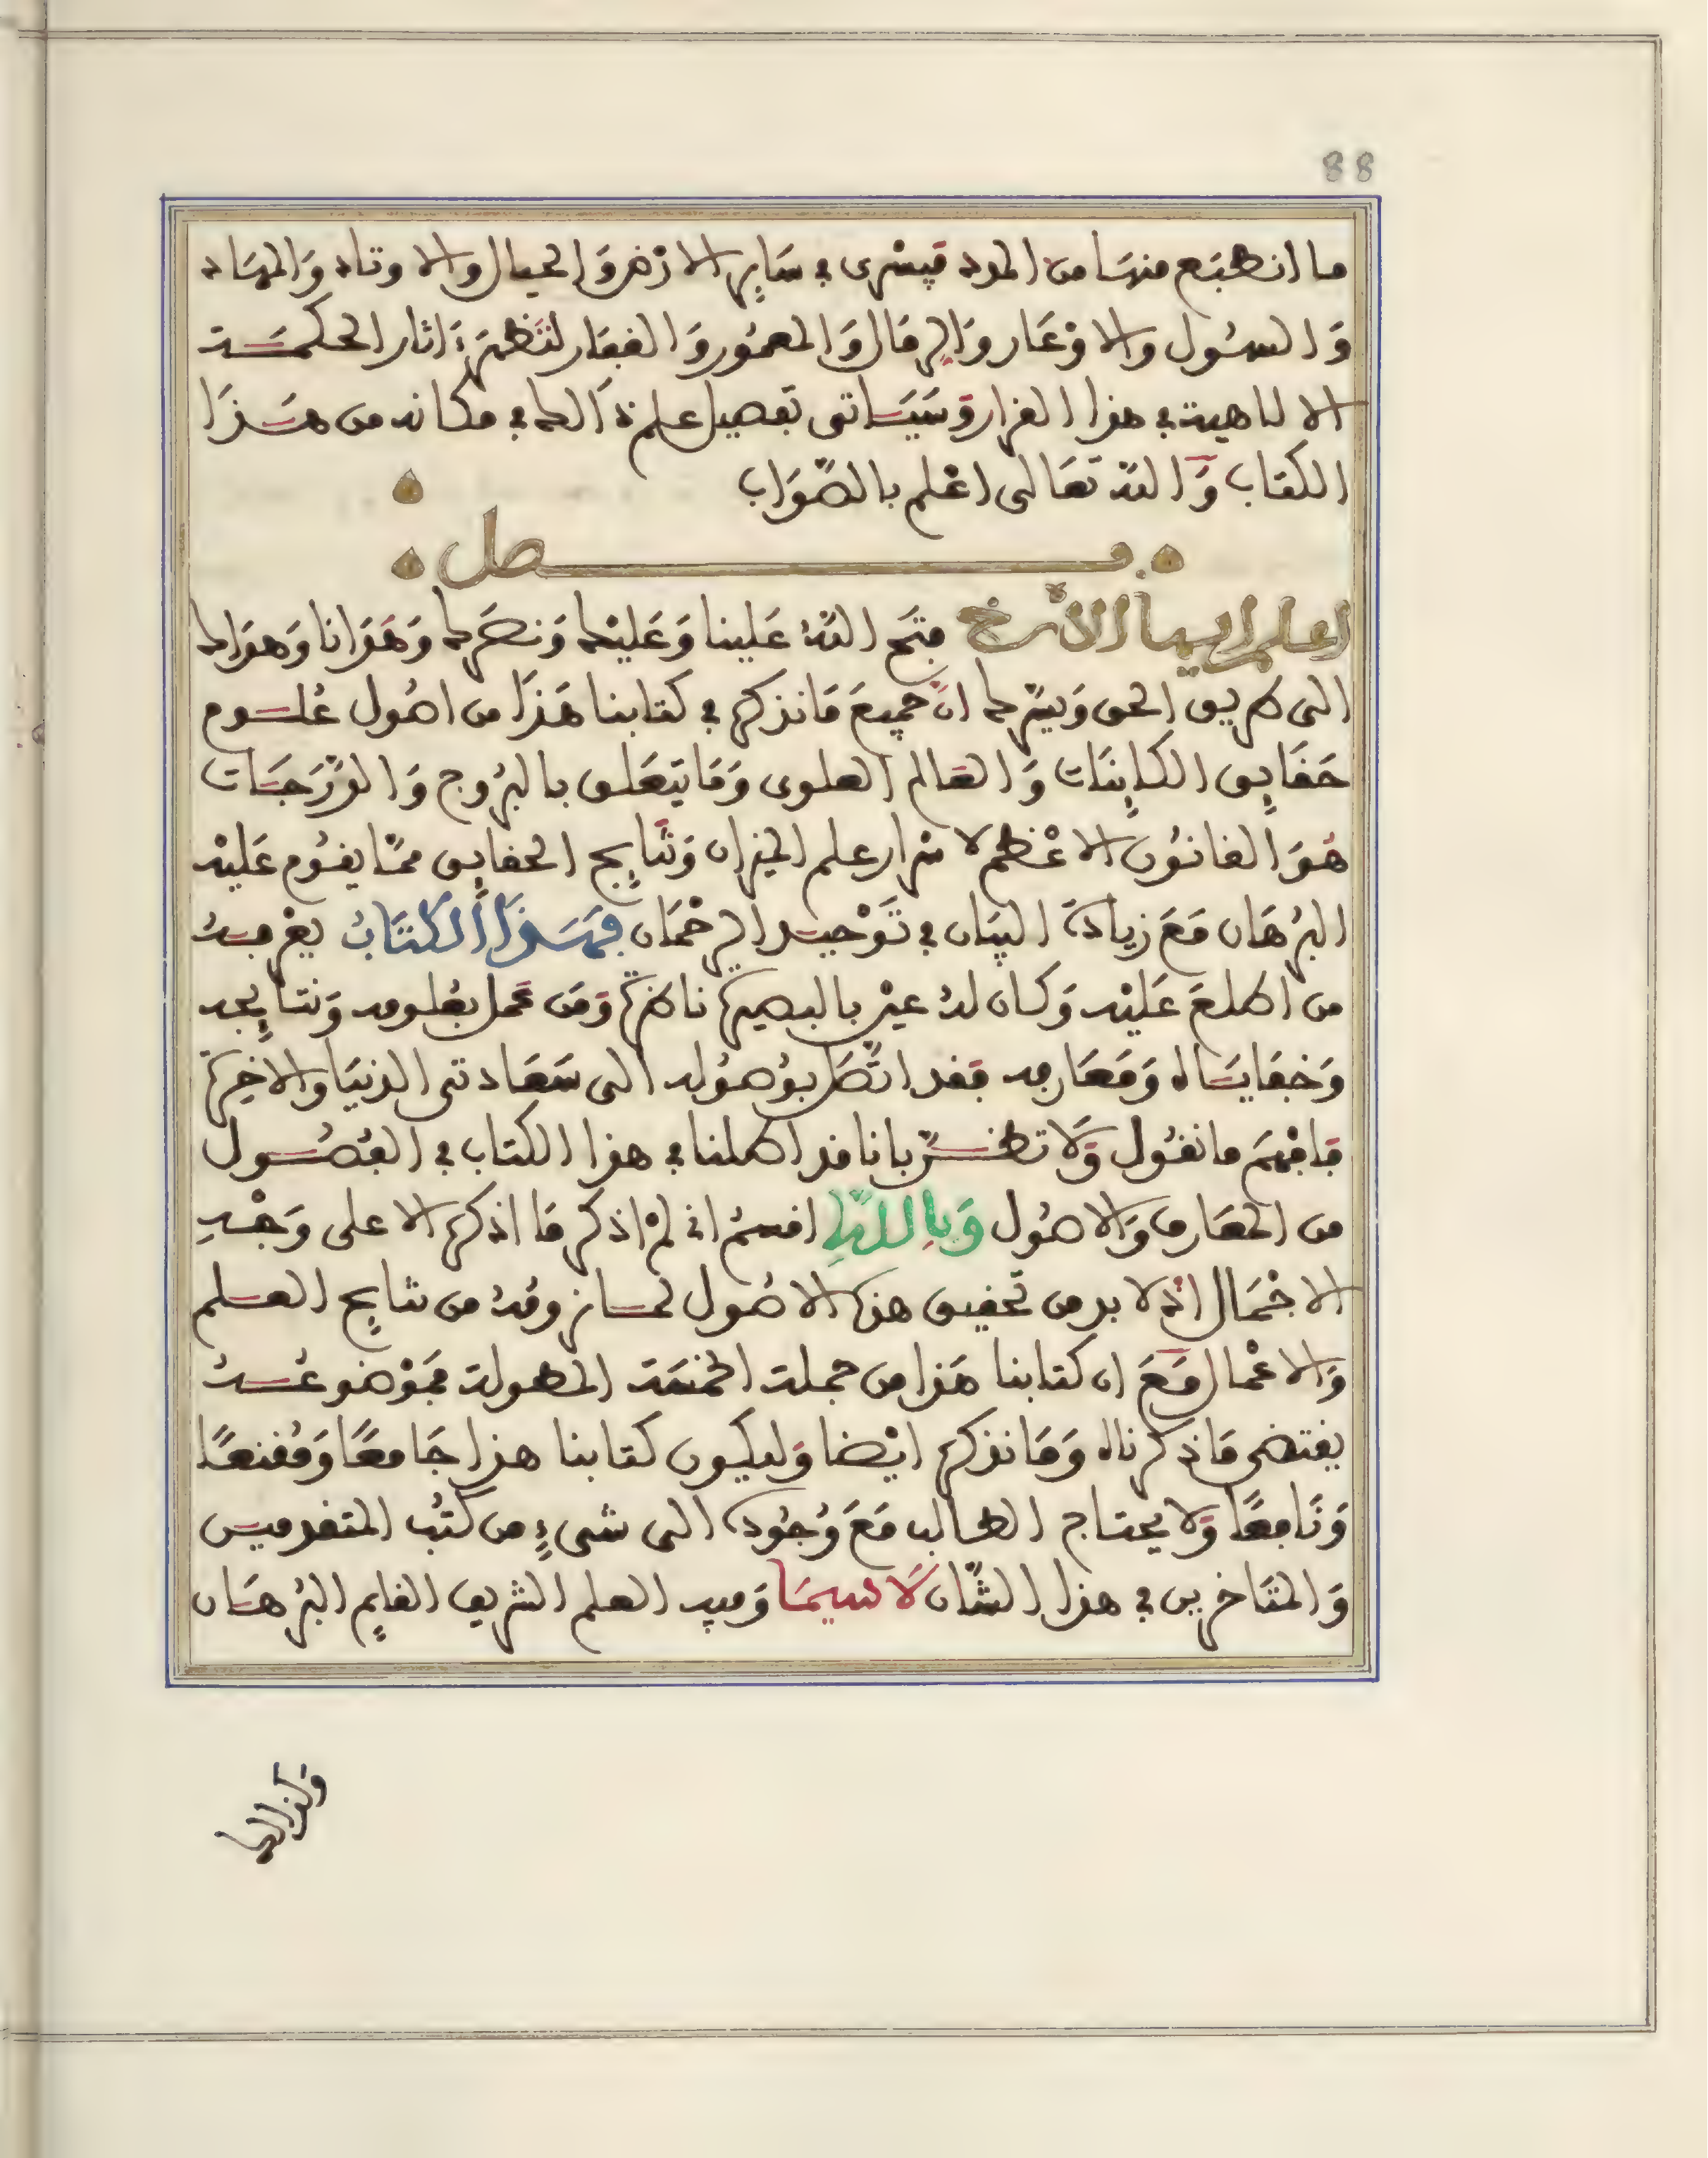 88
ما انطبَع منهَا من المدد فيَسْرى في سَايِر الارْض وَالجبال والاوتاد وَالمهَاد
وَالسهُول والاوْعَار وَالرمَال وَالمعمُور وَالقفَار لتَظهَرَ ءَاثار الحكمَة
الالاهية في هذا الدار وَسَيَاتى تفصيل علم ذَالك في مكانه من هَذَا
الكتاب وَاللّه تعَالى اعْلم بالصّوَاب
فصل
اعلم ايها الأخ فتَح اللّهُ عَلينا وَعَليْك وَنصَرك وَهَدَانا وَهدَاك
الى طريق الحق وَيسّرك انّ جميعَ مَا نذكره في كتابنا هَذَا من اصُول عُلوم
حَقَايِق الكاينَات وَالعَالم العلوى وَمَا يتعَلق بالبرُوج وَالدّرَجَات
هُوَ القانُون الاعْظم لاسْرار علم الميزان وَنتَايِج الحقايِق ممّا يقُوم عَليْه
البُرهَان مَعَ زيادَة البيَان في تَوْحيد الرحْمَان فهَذَا الكتَابُ يعْرفهُ
من اطلعَ عَليْه وَكان لهُ عيْن بالبصيرة ناظرَة وَمَن عَمل بعُلومه وَنتَايِجه
وَخفَايَاه وَمَعَارفه فقد اتّصَل بوُصُوله الى سَعَادتى الدنيَا والاخِرة
فافهَم ما نقُول وَلَا تظنّ بانا قد اطلنا في هذا الكتاب في الفُصُول
من المعَارف وَالاصُول وَباللّهِ اقسمُ انى لمْ اذكر مَا اذكره الا على وَجْهِ
الاجْمَال اذْ لا بد من تحقيق هذه الاصُول لما نرومُهُ من نتايِج العلم
وَالاعْمال مَعَ ان كتابنا هَذا من جملة الخمسَة المطولة فموْضوعُهُ
يقتضى مَا ذكرناه وَمَا نذكره ايْضا وَليكون كتابنا هذا جَامعًا وَمُقنعًا
وَنَافعًا وَلا يحتاج الطالب مَعَ وُجُوده الى شىءٍ من كتُب المتقدمين
وَالمتَاخرين في هذا الشّان لَاسيمَا وَفيه العلم الشريف القايم البُرهَان
وَكذا البيا